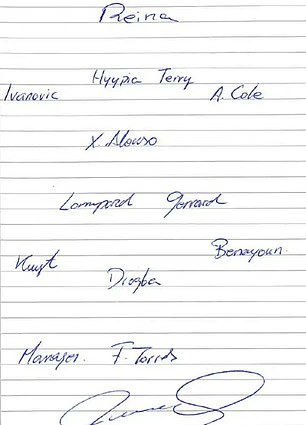 Reina
Hyypia Terry
Ivanovic A. Cole
X. Alonso
Lampard Gerrard
Kuyt Benayoun
Drogba
Manager. F. Torres